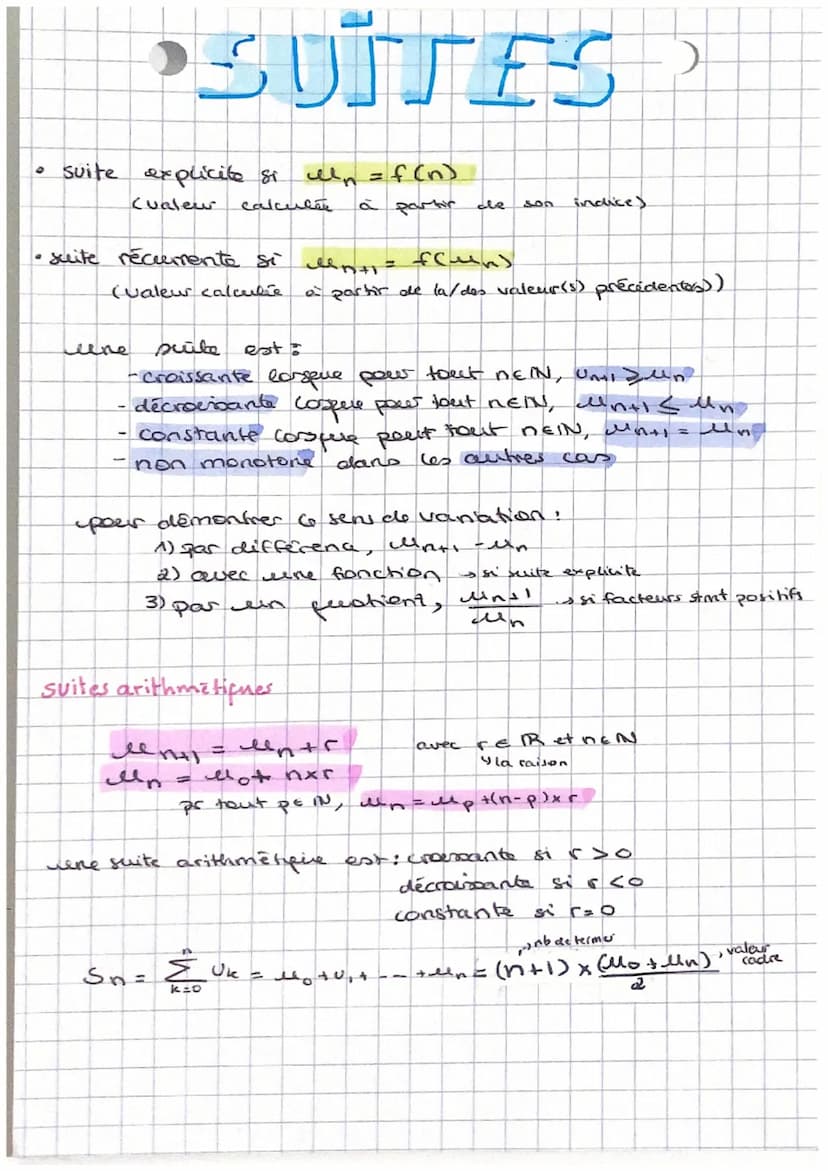 SUITES
• suite explicite si uₙ = f(n)
(valeur calculée à partir de son indice)
• suite récurrente si uₙ₊₁ = f(uₙ)
(valeur calculée à partir de la/des valeur(s) précédente(s))
une suite est :
- croissante lorsque pour tout n∈ℕ, uₙ₊₁ ⩾ uₙ
- décroissante lorsque pour tout n∈ℕ, uₙ₊₁ ≤ uₙ
- constante lorsque pour tout n∈ℕ, uₙ₊₁ = uₙ
- non monotone dans les autres cas
pour démontrer le sens de variation :
1) par différence, uₙ₊₁ - uₙ
2) avec une fonction → si suite explicite
3) par un quotient, uₙ₊₁/uₙ → si facteurs stmt positifs
suites arithmétiques
uₙ₊₁ = uₙ + r avec r∈ℝ et n∈ℕ
↳ la raison
uₙ = u₀ + n×r
pr tout p∈ℕ, uₙ = uₚ + (n-p)×r
une suite arithmétique est : croissante si r > 0
décroissante si r < 0
constante si r = 0
→ nb de termes
Sₙ = Σₖ₌₀ⁿ uₖ = u₀ + u₁ + --- + uₙ = (n+1) × (u₀ + uₙ)/2 valeur